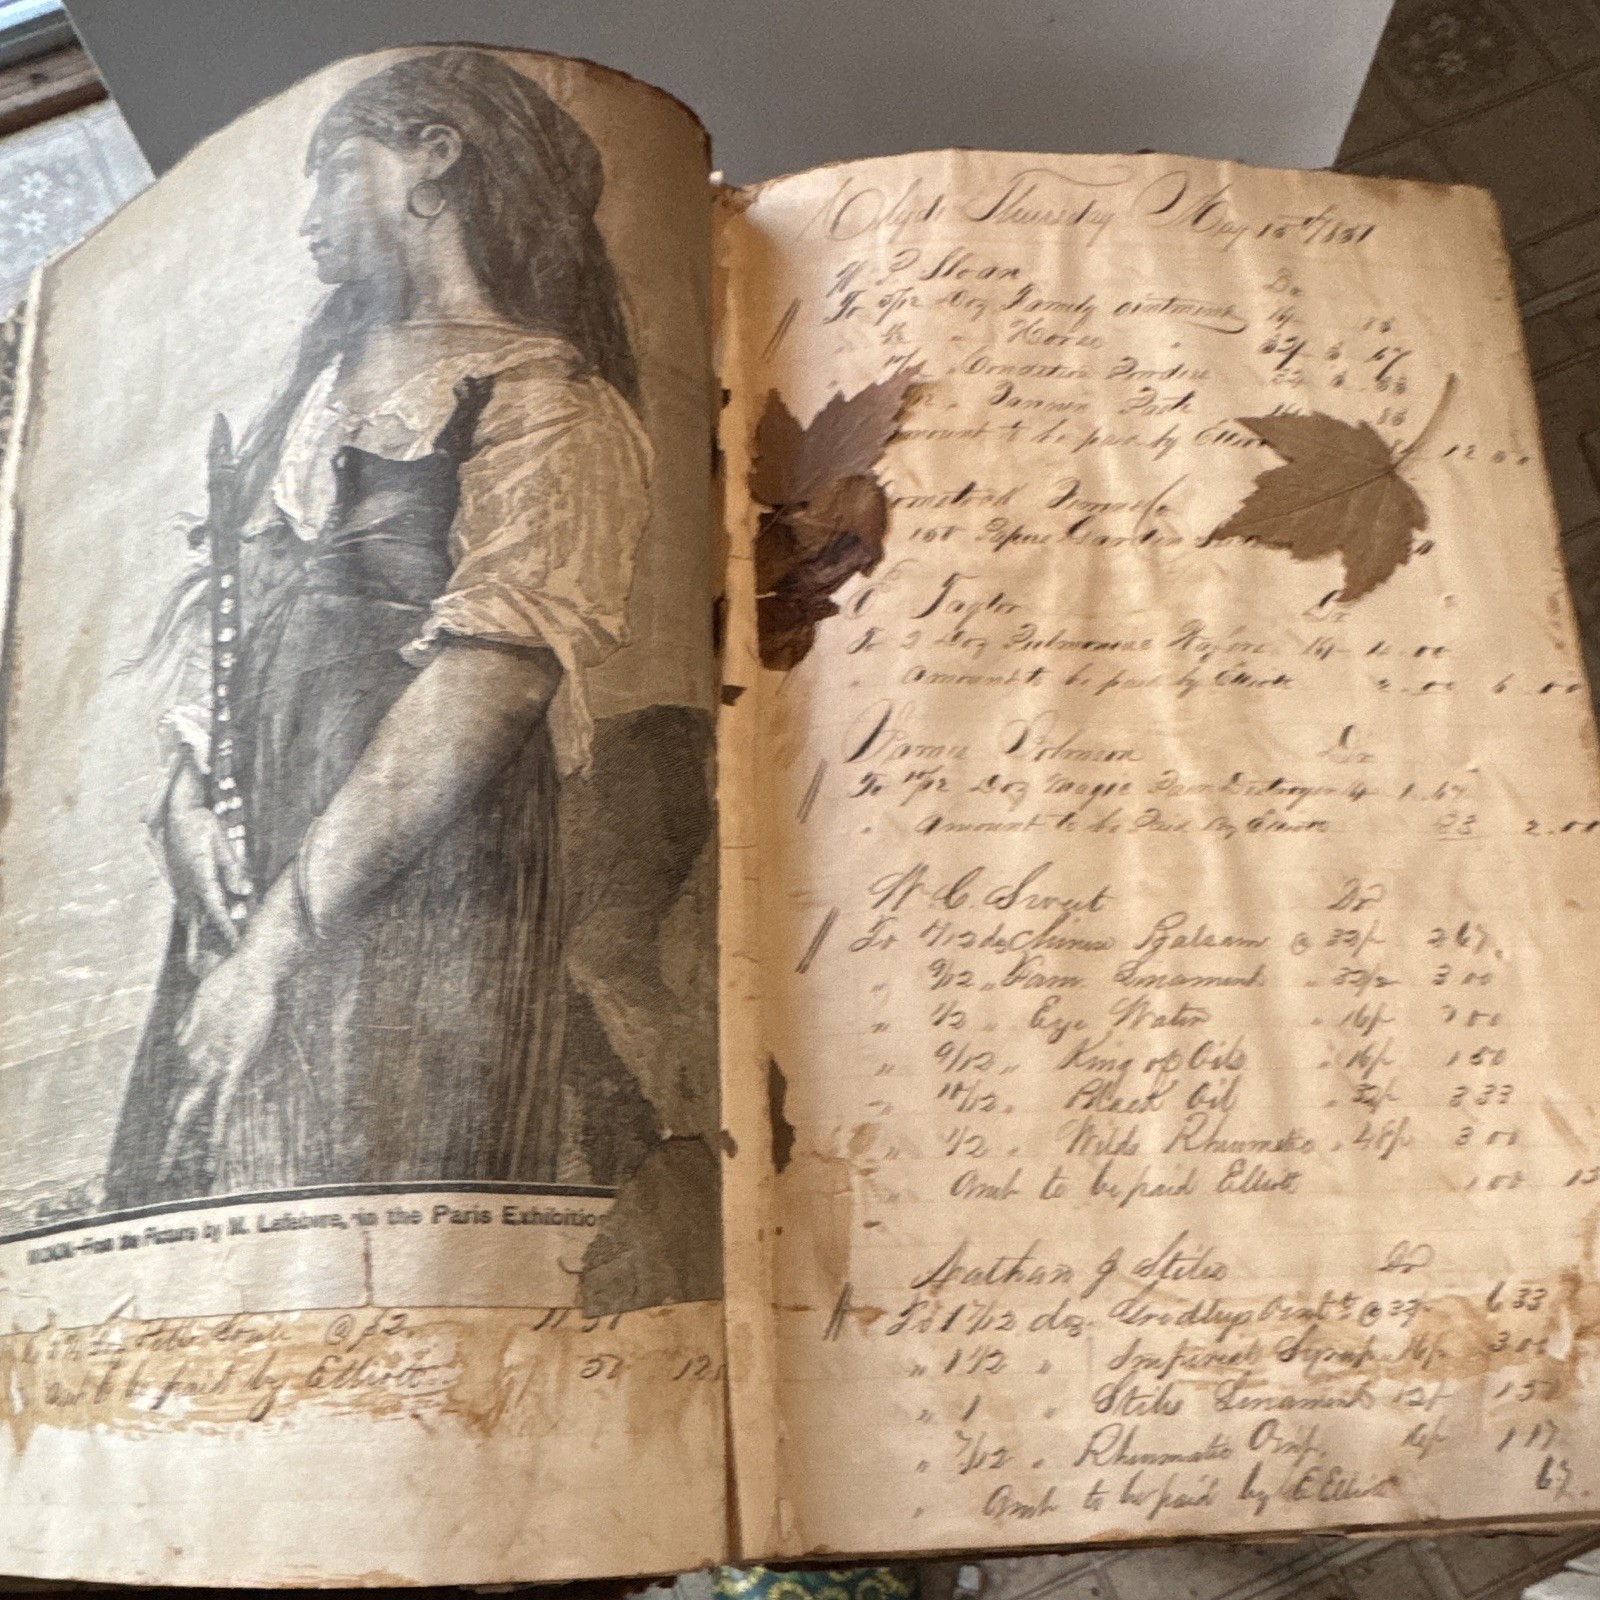 From the Picture by M. Lefebvre, in the Paris Exhibition
@ $2. 11 50
to be paid by Elliott 50 12
Clyde Thursday May 15th/1851
W. P Sloan Dr
To 5/12 Doz Family ointment 16/- 83
1/2 " Horse " 32/-
Condition Powders
" Tannin Paste
Amount to be paid by Elliott 12
Comstock
150 Papers Garden
C Taylor Dr
To 2 Doz Pulmonic Wafers 16/- 4.00
" Amount to be paid by Elliott 2.00 6 00
James Johnson Dr
To 10/12 Doz Magic Pain Destroyer 16/- 1.67
" Amount to be Paid by Elliott 33 2.00
W. C. Sweet Dr
To 4/12 doz Chinese Balsam @ 32/- 2 67
" 9/12 " Fam. Linament " 32/- 3 00
" 1/2 " Eye Water " 16/-
" 9/12 " King of Oils " 16/- 1 50
" 10/12 " Black Oil " 32/- 3 33
" 1/2 " Wilds Rheumatic " 48/- 3 00
" Amt to be paid Elliott 1 00 15
Nathan J Stiles Dr
To 1 7/12 doz. Oint @ 32/- 6 33
" 1 1/2 " Imperial Syrup 16/- 3 00
" 1 " Stiles Linament 12/- 1 50
" 7/12 " Rheumatic 16/- 1 17
" Amt to be paid by E Elliott 67